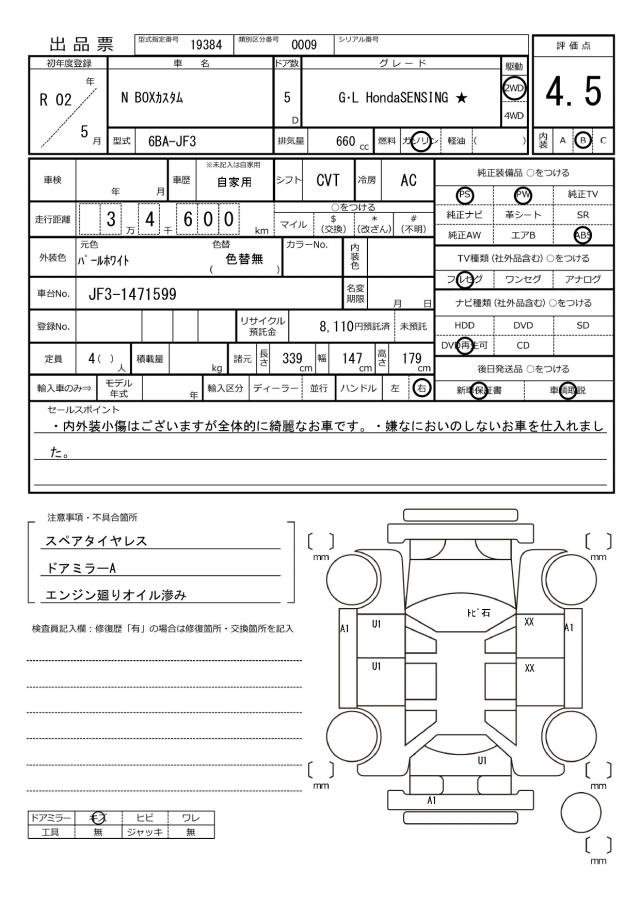 出品票 型式指定番号 19384 類別区分番号 0009 シリアル番号
評価点
4.5
内装 A B C
初年度登録 車名 ドア数 グレード 駆動
R 02 年 5 月
N BOXカスタム 5 D G・L HondaSENSING ★ 2WD 4WD
型式 6BA-JF3 排気量 660 cc 燃料 ガソリン 軽油 ( )
車検 年 月 車歴 ※未記入は自家用 自家用 シフト CVT 冷房 AC
走行距離 3 万 4 千 6 0 0 km
○をつける
マイル $(交換) *(改ざん) #(不明)
外装色 元色 パールホワイト 色替 ( 色替無 ) カラーNo. 内装色
車台No. JF3-1471599 名変期限 月 日
登録No. リサイクル預託金 8,110円預託済 未預託
定員 4 ( ) 人 積載量 kg 諸元 長さ 339 cm 幅 147 cm 高さ 179 cm
輸入車のみ⇒ モデル年式 年 輸入区分 ディーラー 並行 ハンドル 左 右
純正装備品 ○をつける
PS PW 純正TV
純正ナビ 革シート SR
純正AW エアB ABS
TV種類 (社外品含む) ○をつける
フルセグ ワンセグ アナログ
ナビ種類 (社外品含む) ○をつける
HDD DVD SD
DVD再生可 CD
後日発送品 ○をつける
新車保証書 車輌取説
セールスポイント
・内外装小傷はございますが全体的に綺麗なお車です。・嫌なにおいのしないお車を仕入れまし
た。
注意事項・不具合箇所
スペアタイヤレス
ドアミラーA
エンジン廻りオイル滲み
検査員記入欄：修復歴「有」の場合は修復箇所・交換箇所を記入
ドアミラー キズ ヒビ ワレ
工具 無 ジャッキ 無
〔 〕 mm
〔 〕 mm
トビ石
A1 U1 XX A1
U1 XX
U1
A1
〔 〕 mm
〔 〕 mm
〔 〕 mm